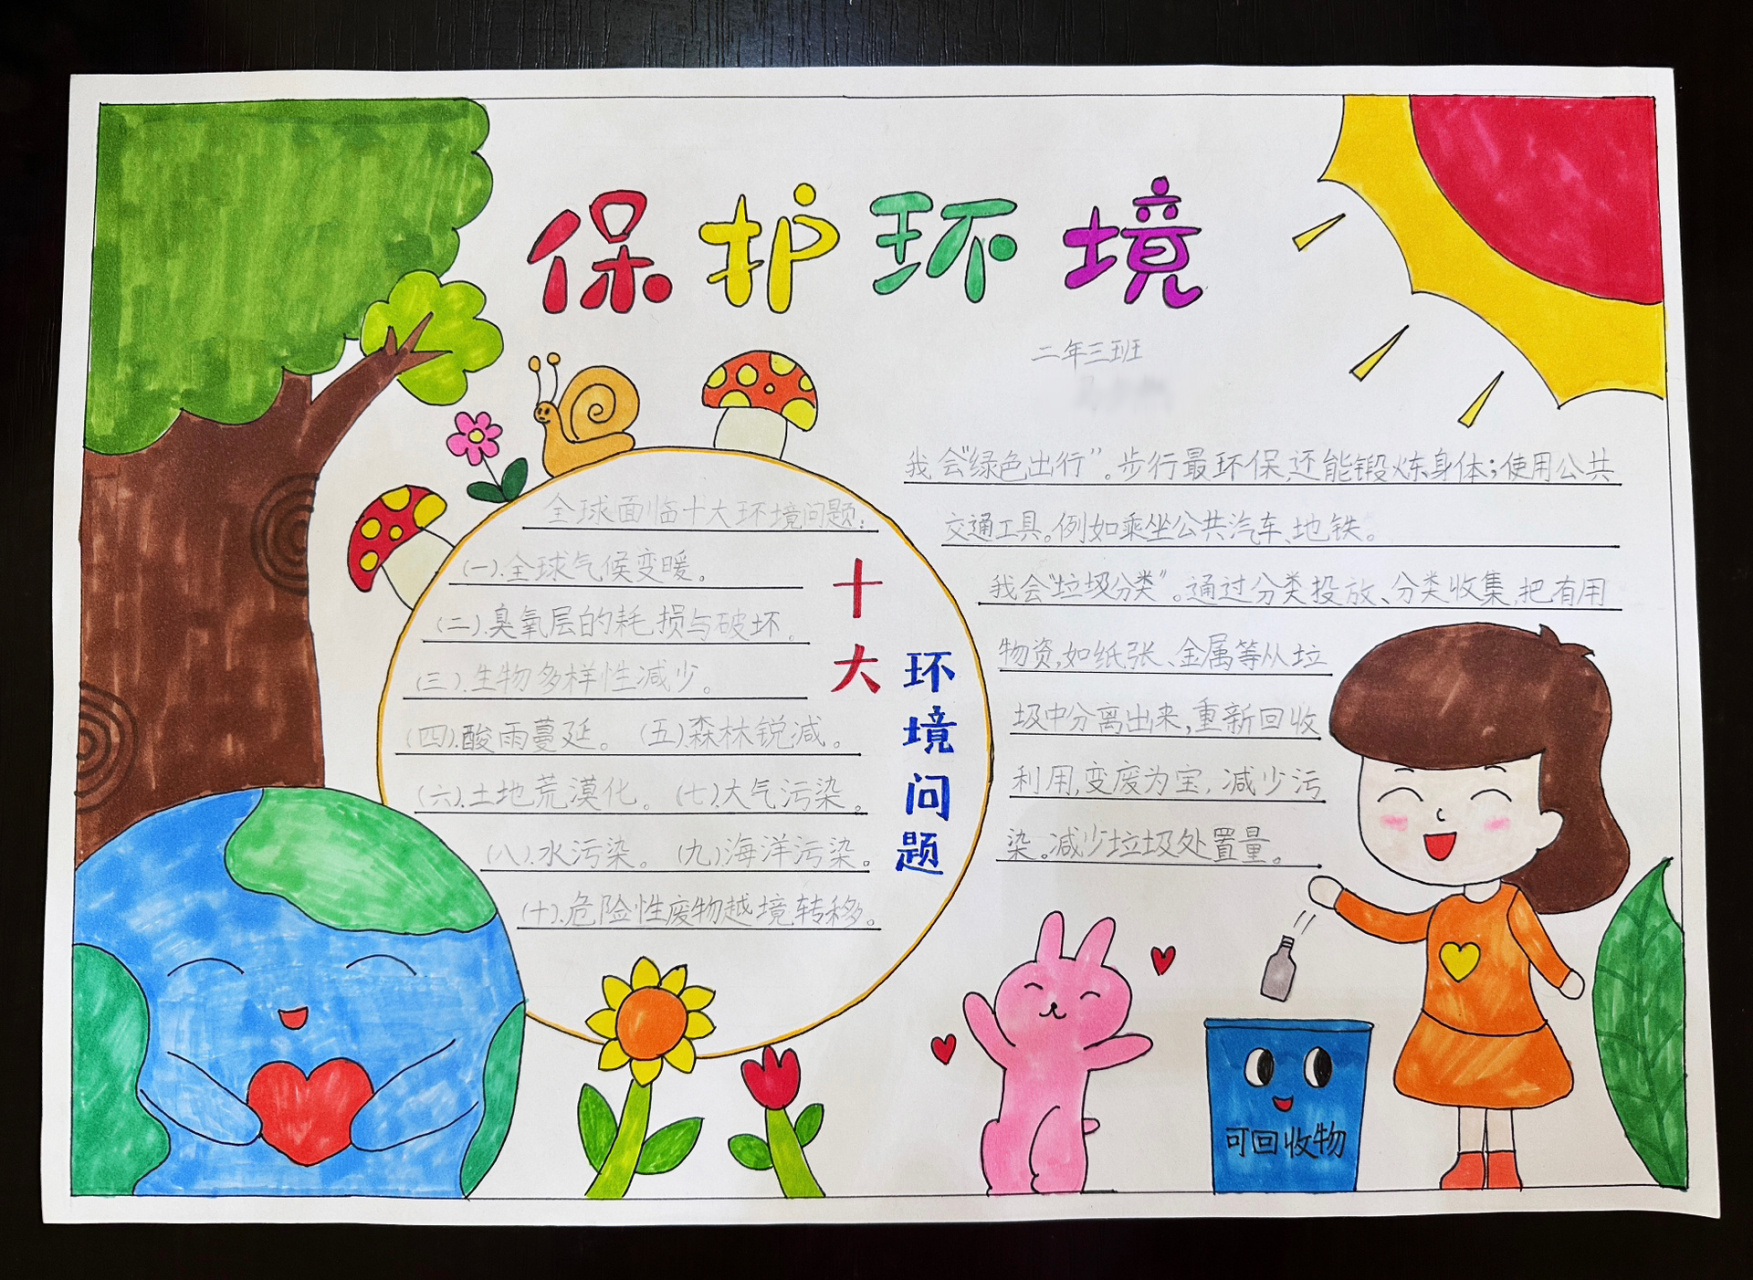 保护环境
二年三班
全球面临十大环境问题:
(一).全球气候变暖。
(二).臭氧层的耗损与破坏.
(三).生物多样性减少。
(四).酸雨蔓延。 (五).森林锐减。
(六).土地荒漠化。 (七).大气污染。
(八).水污染。 (九).海洋污染。
(十).危险性废物越境转移。
十大
环境问题
我会“绿色出行”。步行最环保,还能锻炼身体;使用公共
交通工具。例如乘坐公共汽车、地铁。
我会“垃圾分类”。通过分类投放、分类收集,把有用
物资,如纸张、金属等从垃
圾中分离出来,重新回收
利用,变废为宝,减少污
染。减少垃圾处置量。
可回收物